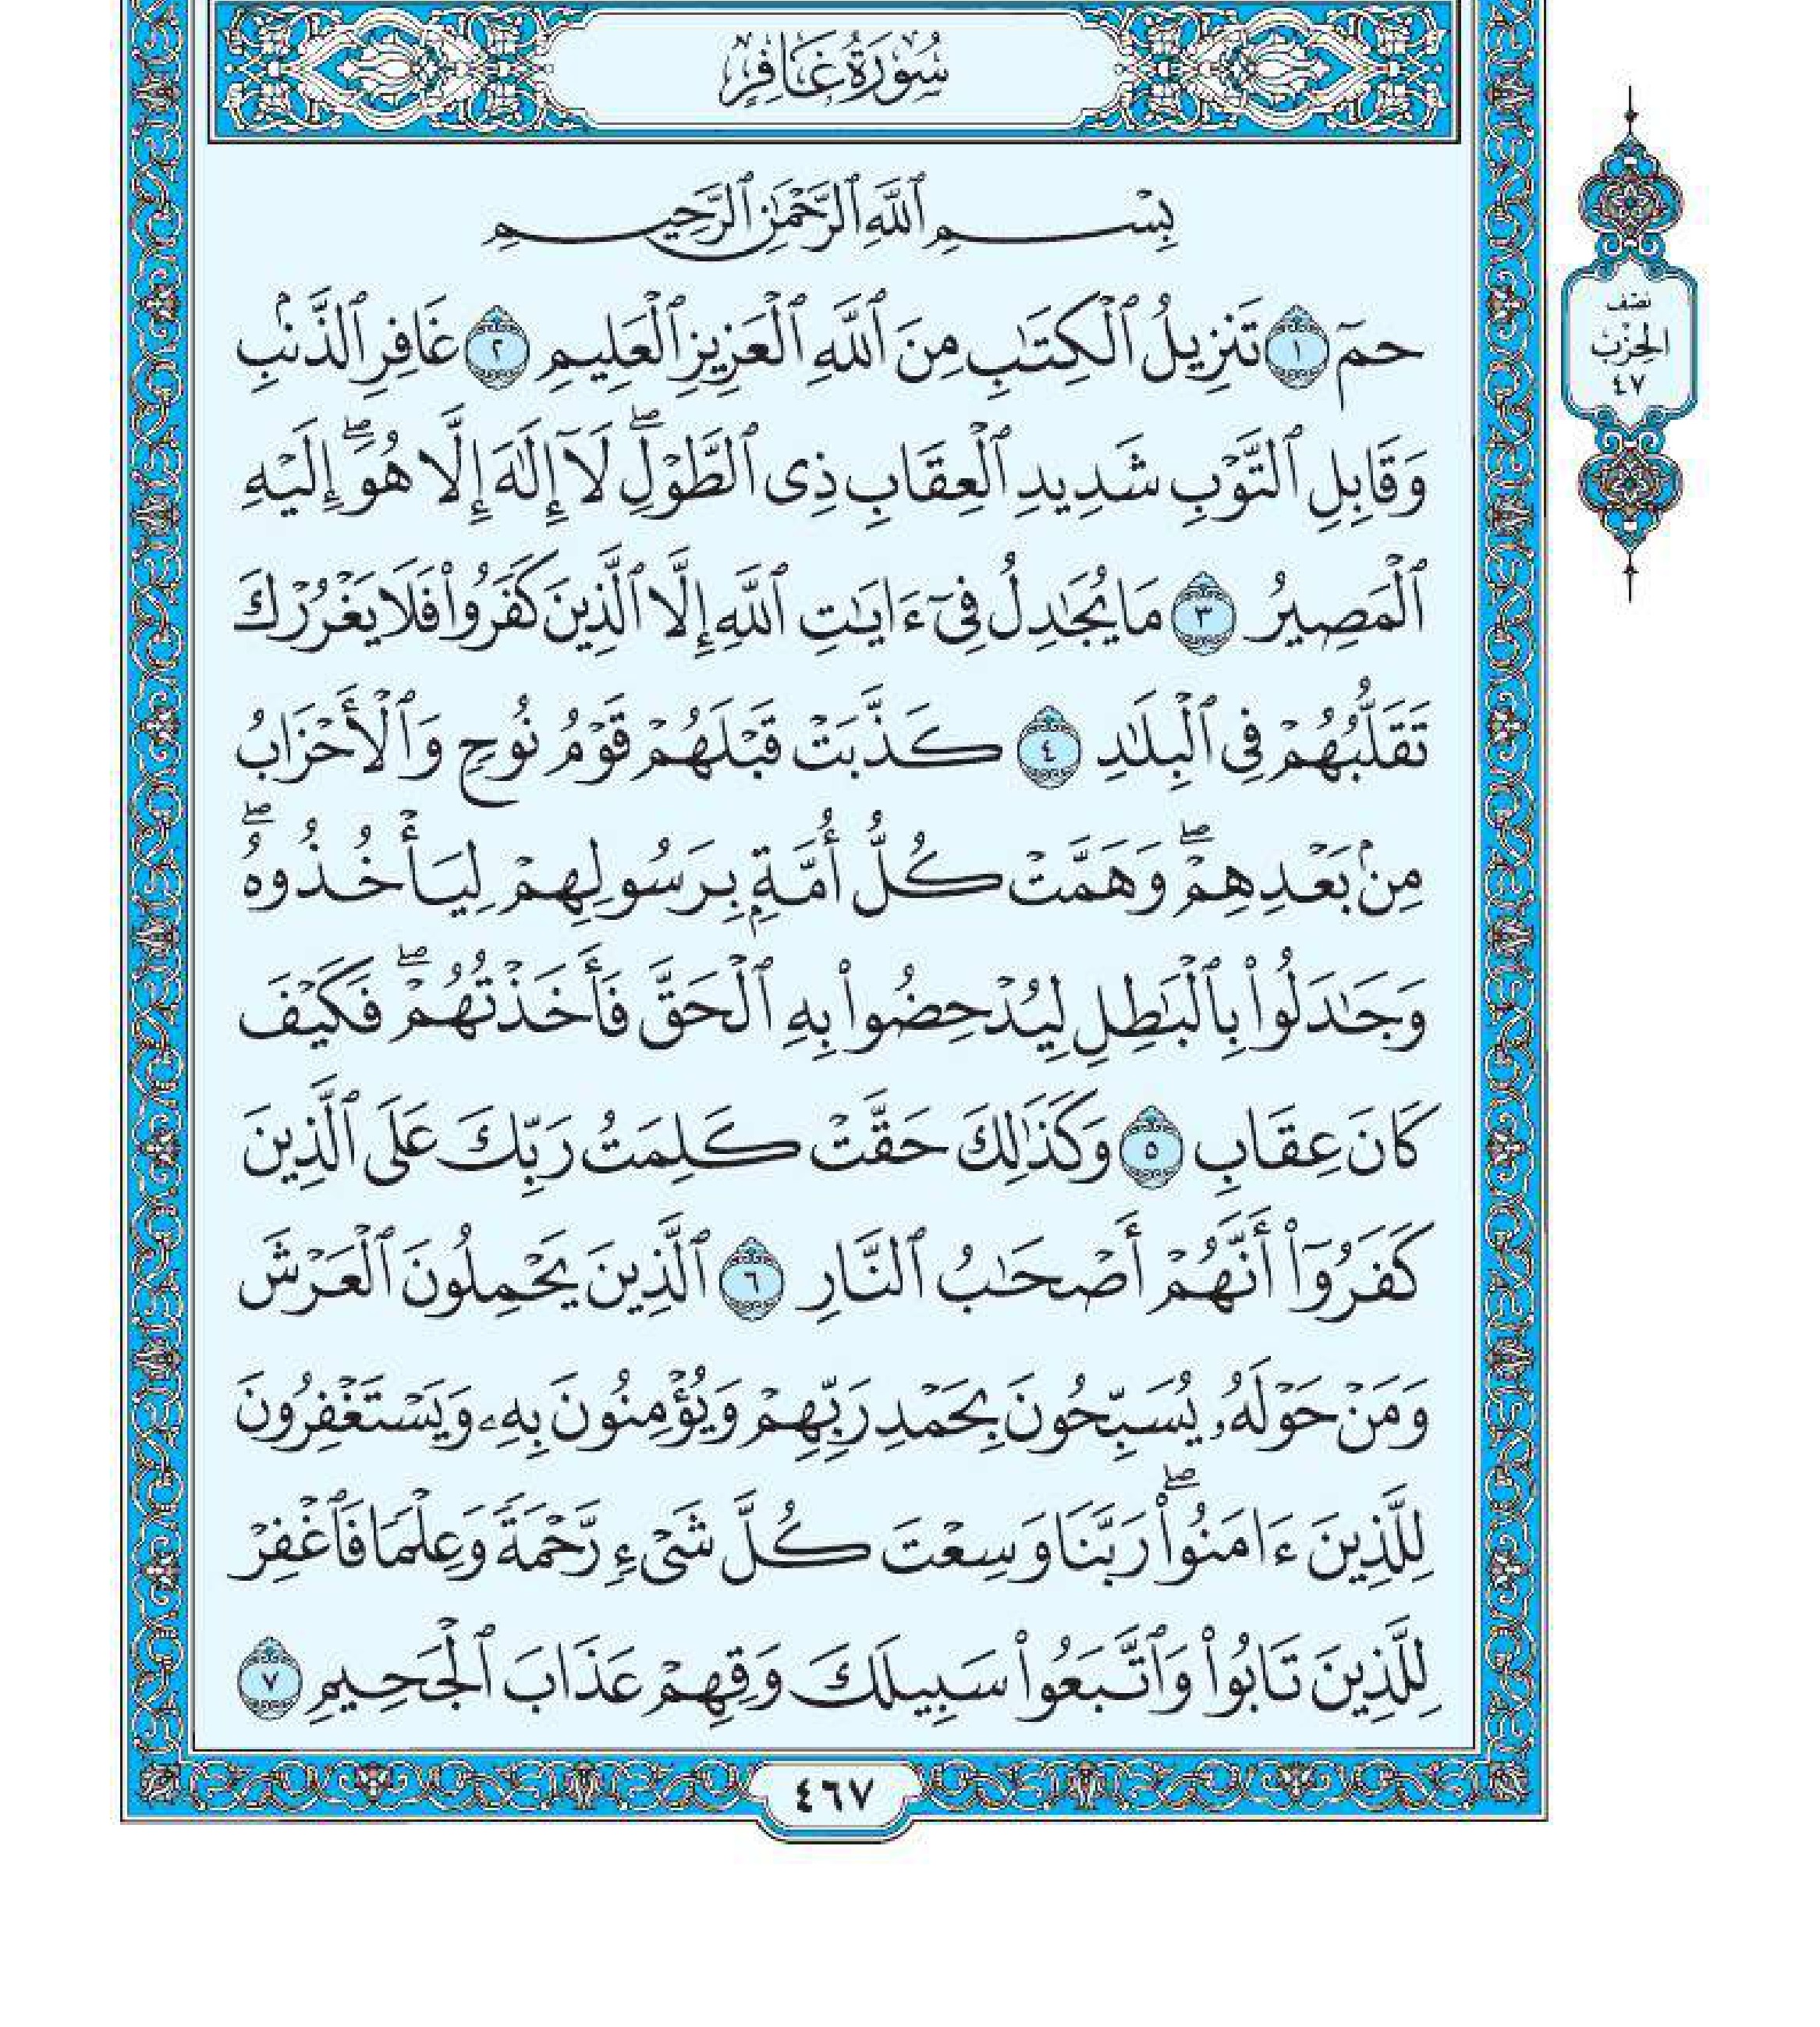 سُورَةُ غَافِرٍ
بِسْمِ ٱللَّهِ ٱلرَّحْمَٰنِ ٱلرَّحِيمِ
نصف
الحِزْب
٤٧
حمٓ ١ تَنزِيلُ ٱلْكِتَٰبِ مِنَ ٱللَّهِ ٱلْعَزِيزِ ٱلْعَلِيمِ ٢ غَافِرِ ٱلذَّنۢبِ
وَقَابِلِ ٱلتَّوْبِ شَدِيدِ ٱلْعِقَابِ ذِى ٱلطَّوْلِ ۖ لَآ إِلَٰهَ إِلَّا هُوَ ۖ إِلَيْهِ
ٱلْمَصِيرُ ٣ مَا يُجَٰدِلُ فِىٓ ءَايَٰتِ ٱللَّهِ إِلَّا ٱلَّذِينَ كَفَرُوا۟ فَلَا يَغْرُرْكَ
تَقَلُّبُهُمْ فِى ٱلْبِلَٰدِ ٤ كَذَّبَتْ قَبْلَهُمْ قَوْمُ نُوحٍ وَٱلْأَحْزَابُ
مِنۢ بَعْدِهِمْ ۖ وَهَمَّتْ كُلُّ أُمَّةٍۭ بِرَسُولِهِمْ لِيَأْخُذُوهُ ۖ
وَجَٰدَلُوا۟ بِٱلْبَٰطِلِ لِيُدْحِضُوا۟ بِهِ ٱلْحَقَّ فَأَخَذْتُهُمْ ۖ فَكَيْفَ
كَانَ عِقَابِ ٥ وَكَذَٰلِكَ حَقَّتْ كَلِمَتُ رَبِّكَ عَلَى ٱلَّذِينَ
كَفَرُوٓا۟ أَنَّهُمْ أَصْحَٰبُ ٱلنَّارِ ٦ ٱلَّذِينَ يَحْمِلُونَ ٱلْعَرْشَ
وَمَنْ حَوْلَهُۥ يُسَبِّحُونَ بِحَمْدِ رَبِّهِمْ وَيُؤْمِنُونَ بِهِۦ وَيَسْتَغْفِرُونَ
لِلَّذِينَ ءَامَنُوا۟ ۖ رَبَّنَا وَسِعْتَ كُلَّ شَىْءٍ رَّحْمَةً وَعِلْمًا فَٱغْفِرْ
لِلَّذِينَ تَابُوا۟ وَٱتَّبَعُوا۟ سَبِيلَكَ وَقِهِمْ عَذَابَ ٱلْجَحِيمِ ٧
٤٦٧